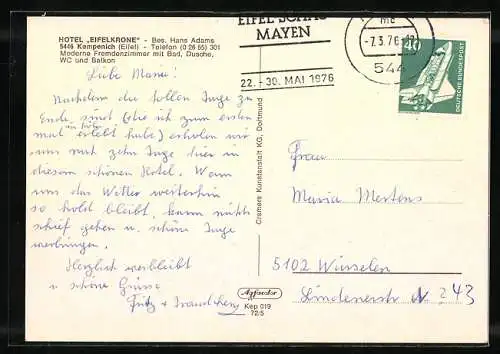 HOTEL „EIFELKRONE" - Bes. Hans Adams
5446 Kempenich (Eifel) - Telefon (0 26 55) 301
Moderne Fremdenzimmer mit Bad, Dusche,
WC und Balkon
Liebe Maria!
Nachdem die tollen Tage zu
Ende sind (die ich zum ersten
mal in Köln erlebt habe) erholen wir
uns nun zehn Tage hier in
diesem schönen Hotel. Wenn
uns das Wetter weiterhin
so hold bleibt, kann nichts
schief gehen u. schöne Tage
verbringen.
Herzlich verbleibt
u schöne Grüsse
Fritz +
Cramers Kunstanstalt KG, Dortmund
Agfacolor
Kep 019
72/5
EIFEL
MAYEN
22. - 30. MAI 1976
- 7.3.76
544
mc
40
DEUTSCHE BUNDESPOST
Frau
Maria Mertens
5102 Würselen
Lindenerstr 243